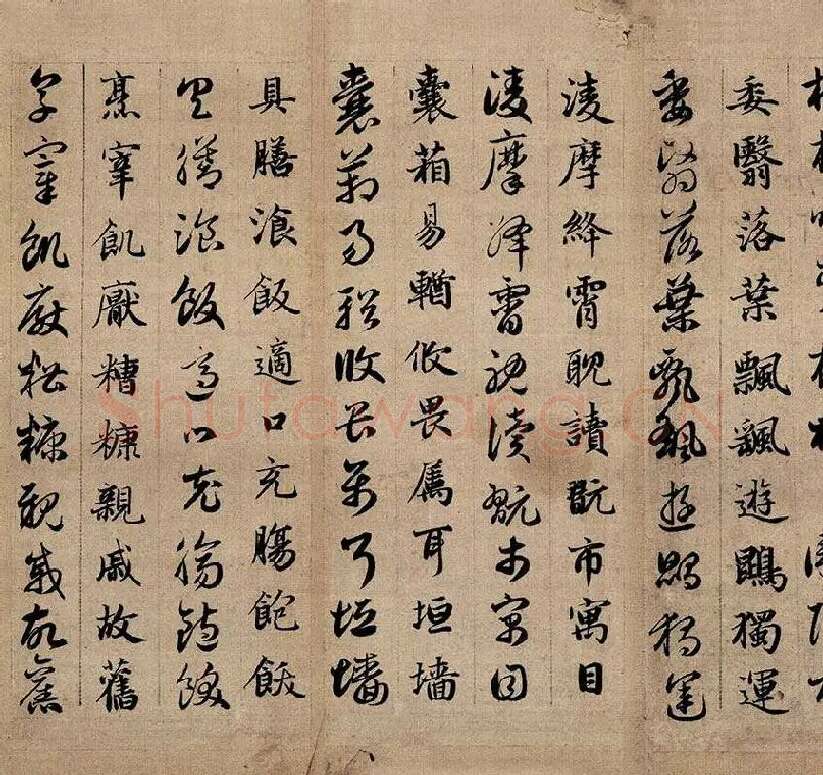 委翳落葉飄颻遊鵾獨運
委翳落葉飄颻遊鵾獨運
淩摩絳霄耽讀翫市寓目
淩摩絳霄耽讀翫市寓目
囊葙易輶攸畏属耳垣墙
囊葙易輶攸畏属耳垣墙
具膳湌飯適口充腸飽飫
具膳湌飯適口充腸飽飫
烹宰飢厭糟糠親戚故舊
烹宰飢厭糟糠親戚故舊
Shufawang.CN